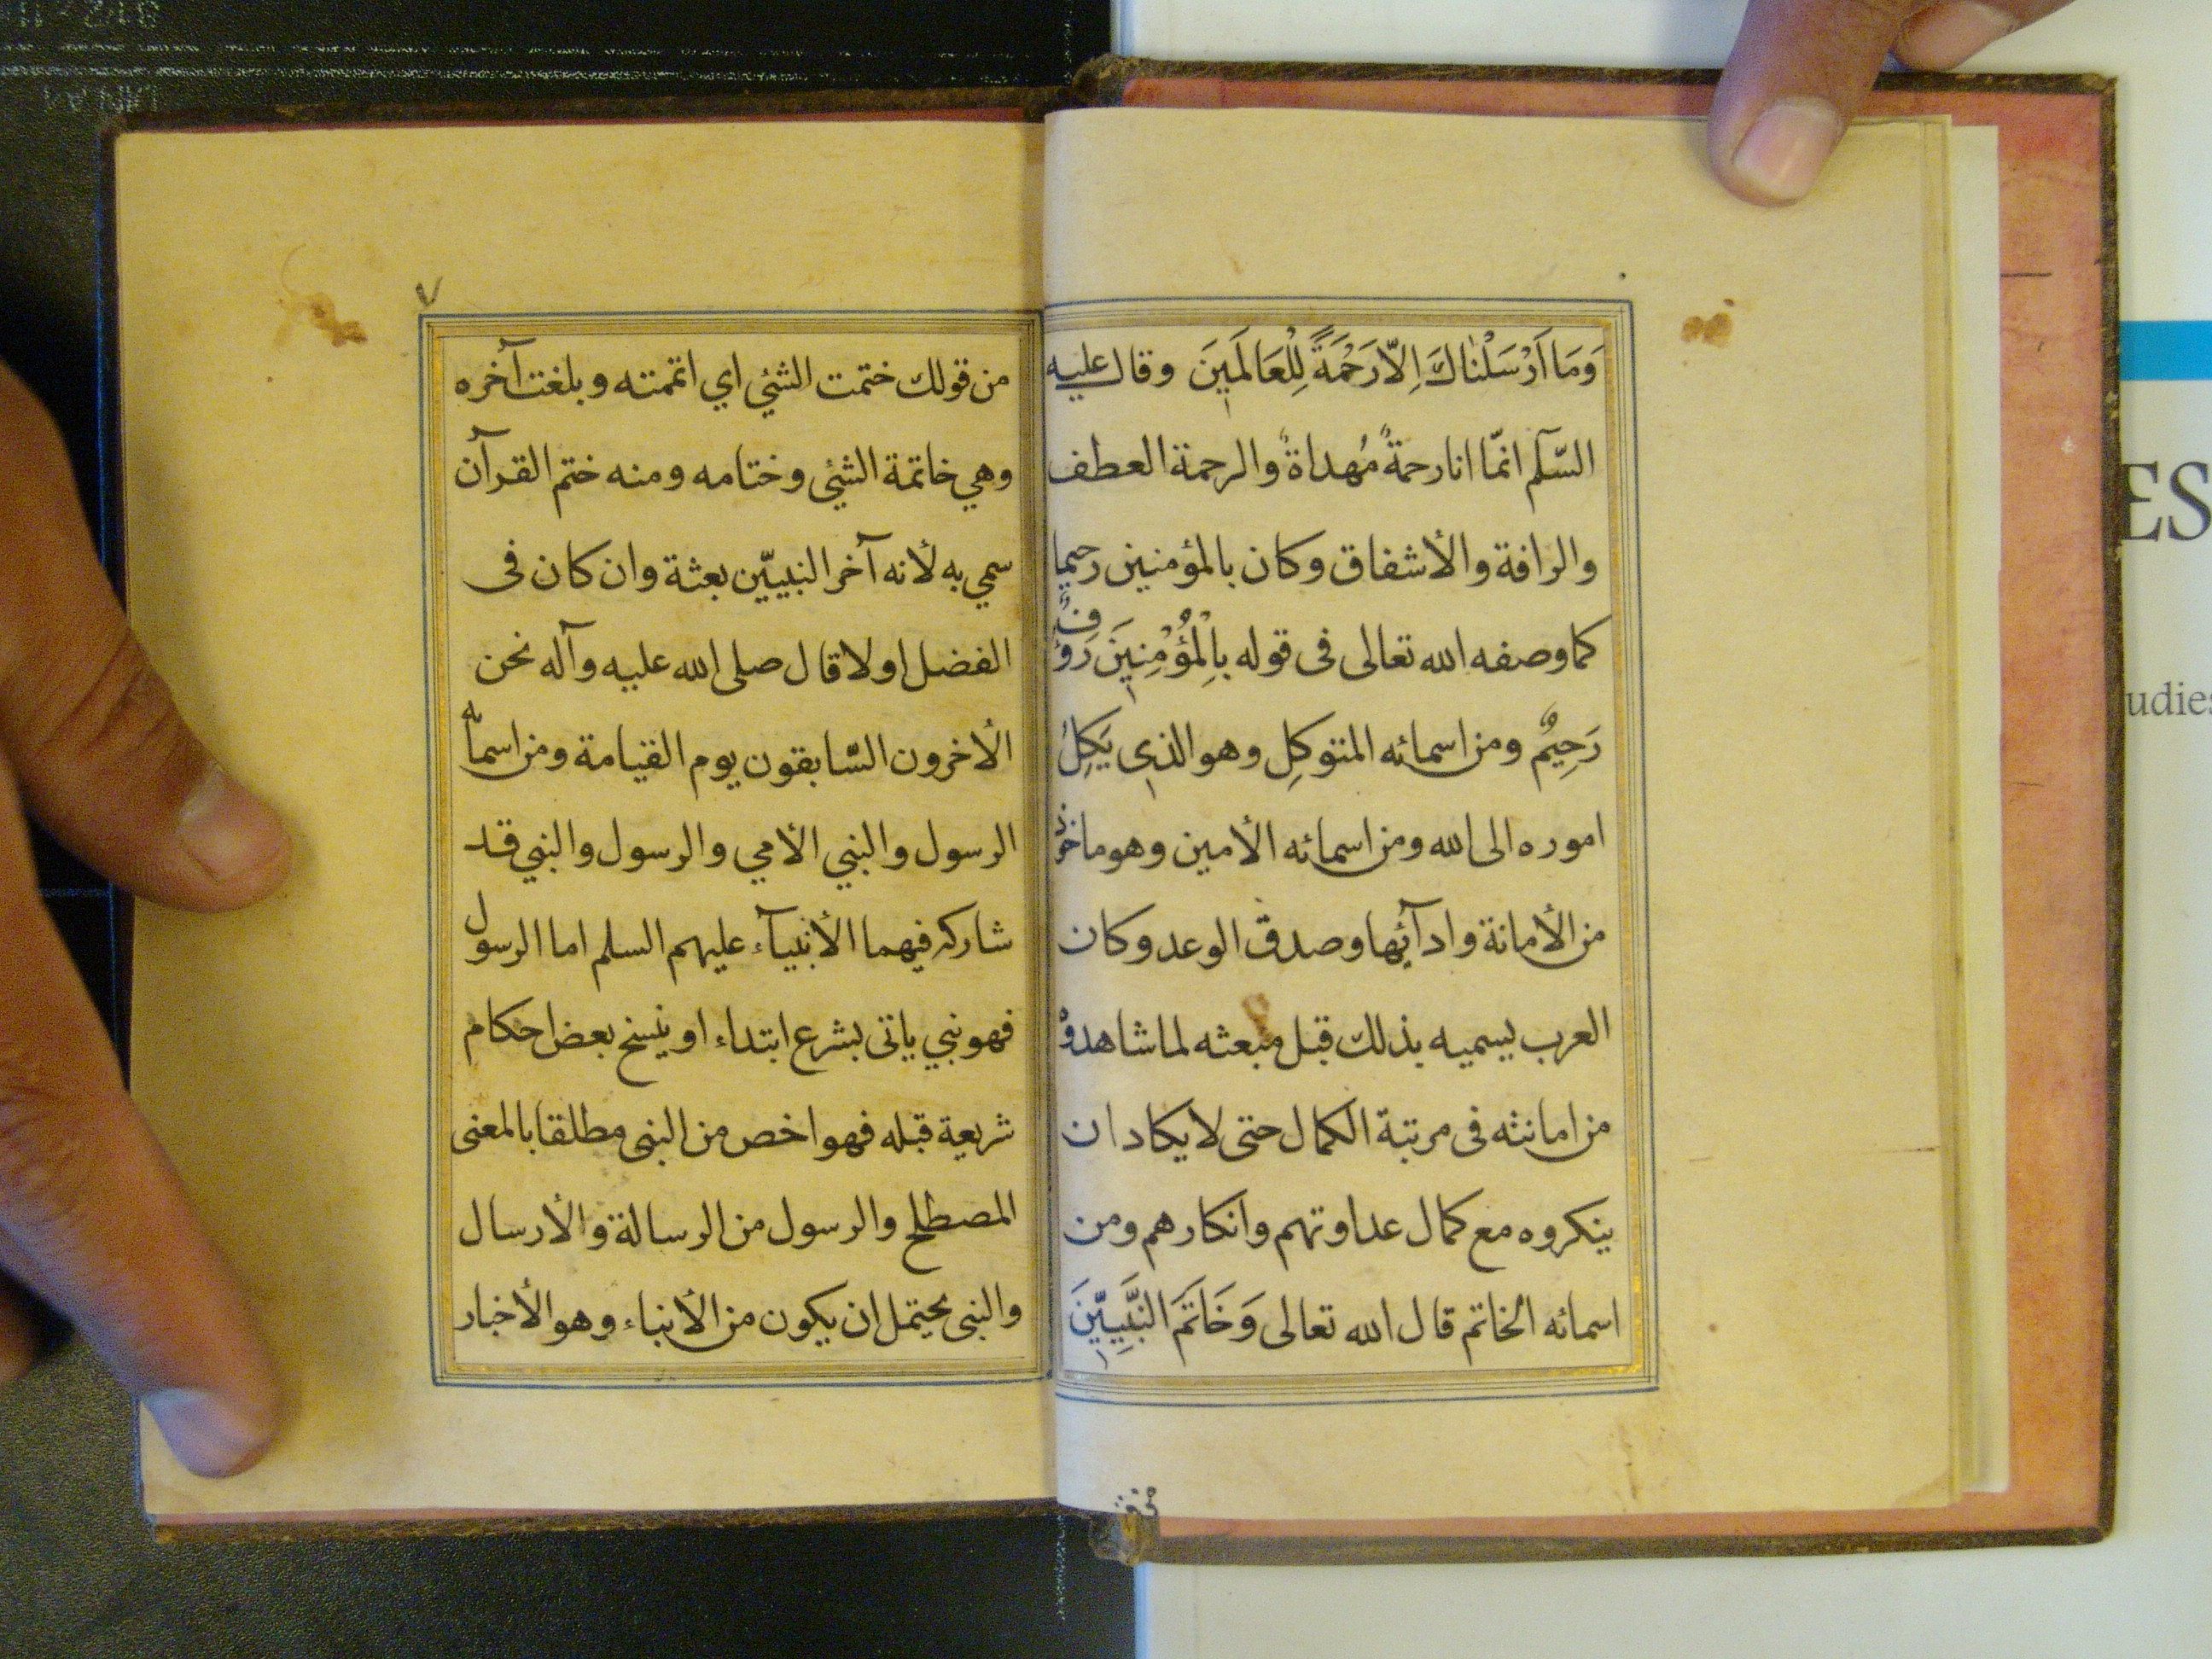 وَمَا اَرْسَلْنٰاكَ اِلّا رَحْمَةً لِلْعَالَمَينَ وقال عليه
السّلٓم انمّا انا رحمةٌ مُهداةٌ والرحمة العطف
والرافة والأشفاق وكان بالمؤمنين رحيما
كما وصفه الله تعالى فى قوله بِالْمُؤْمِنِينَ رَؤفٌ
رَحِيمٌ ومن اسمائه المتوكِل وهو الذي يَكِلُ
اموره الى الله ومن اسمائه الأمين وهو ماخوذ
من الأمانة وادآئها وصدق الوعد وكان
العرب يسميه بذلك قبل مبعثه لما شاهدوْ
من امانته فى مرتبة الكمال حتى لا يكاد ان
ينكروه مع كمال عداوتهم وانكارهم ومن
اسمائه الخاتم قال الله تعالى وَخَاتَمَ النَّبِيّينَ
٧
من قولك ختمت الشئي اي اتممته وبلغت آخره
وهي خاتمة الشئي وختامه ومنه ختم القرآن
سمي به لأنه آخر النبييّن بعثة وان كان فى
الفضل اولا قال صلى الله عليه وآله نحن
الأخرون السّابقون يوم القيامة ومن اسمائه
الرسول والنبي الأمي والرسول والنبي قد
شاركه فيهما الأنبيآء عليهم السلم اما الرسول
فهو نبي ياتى بشرع ابتداء او ينسخ بعض احكام
شريعة قبله فهو اخص من النبى مطلقا بالمعنى
المصطلح والرسول من الرسالة والأرسال
والنبى يحتمل ان يكون من الأنباء وهو الأخبار
ES
udies